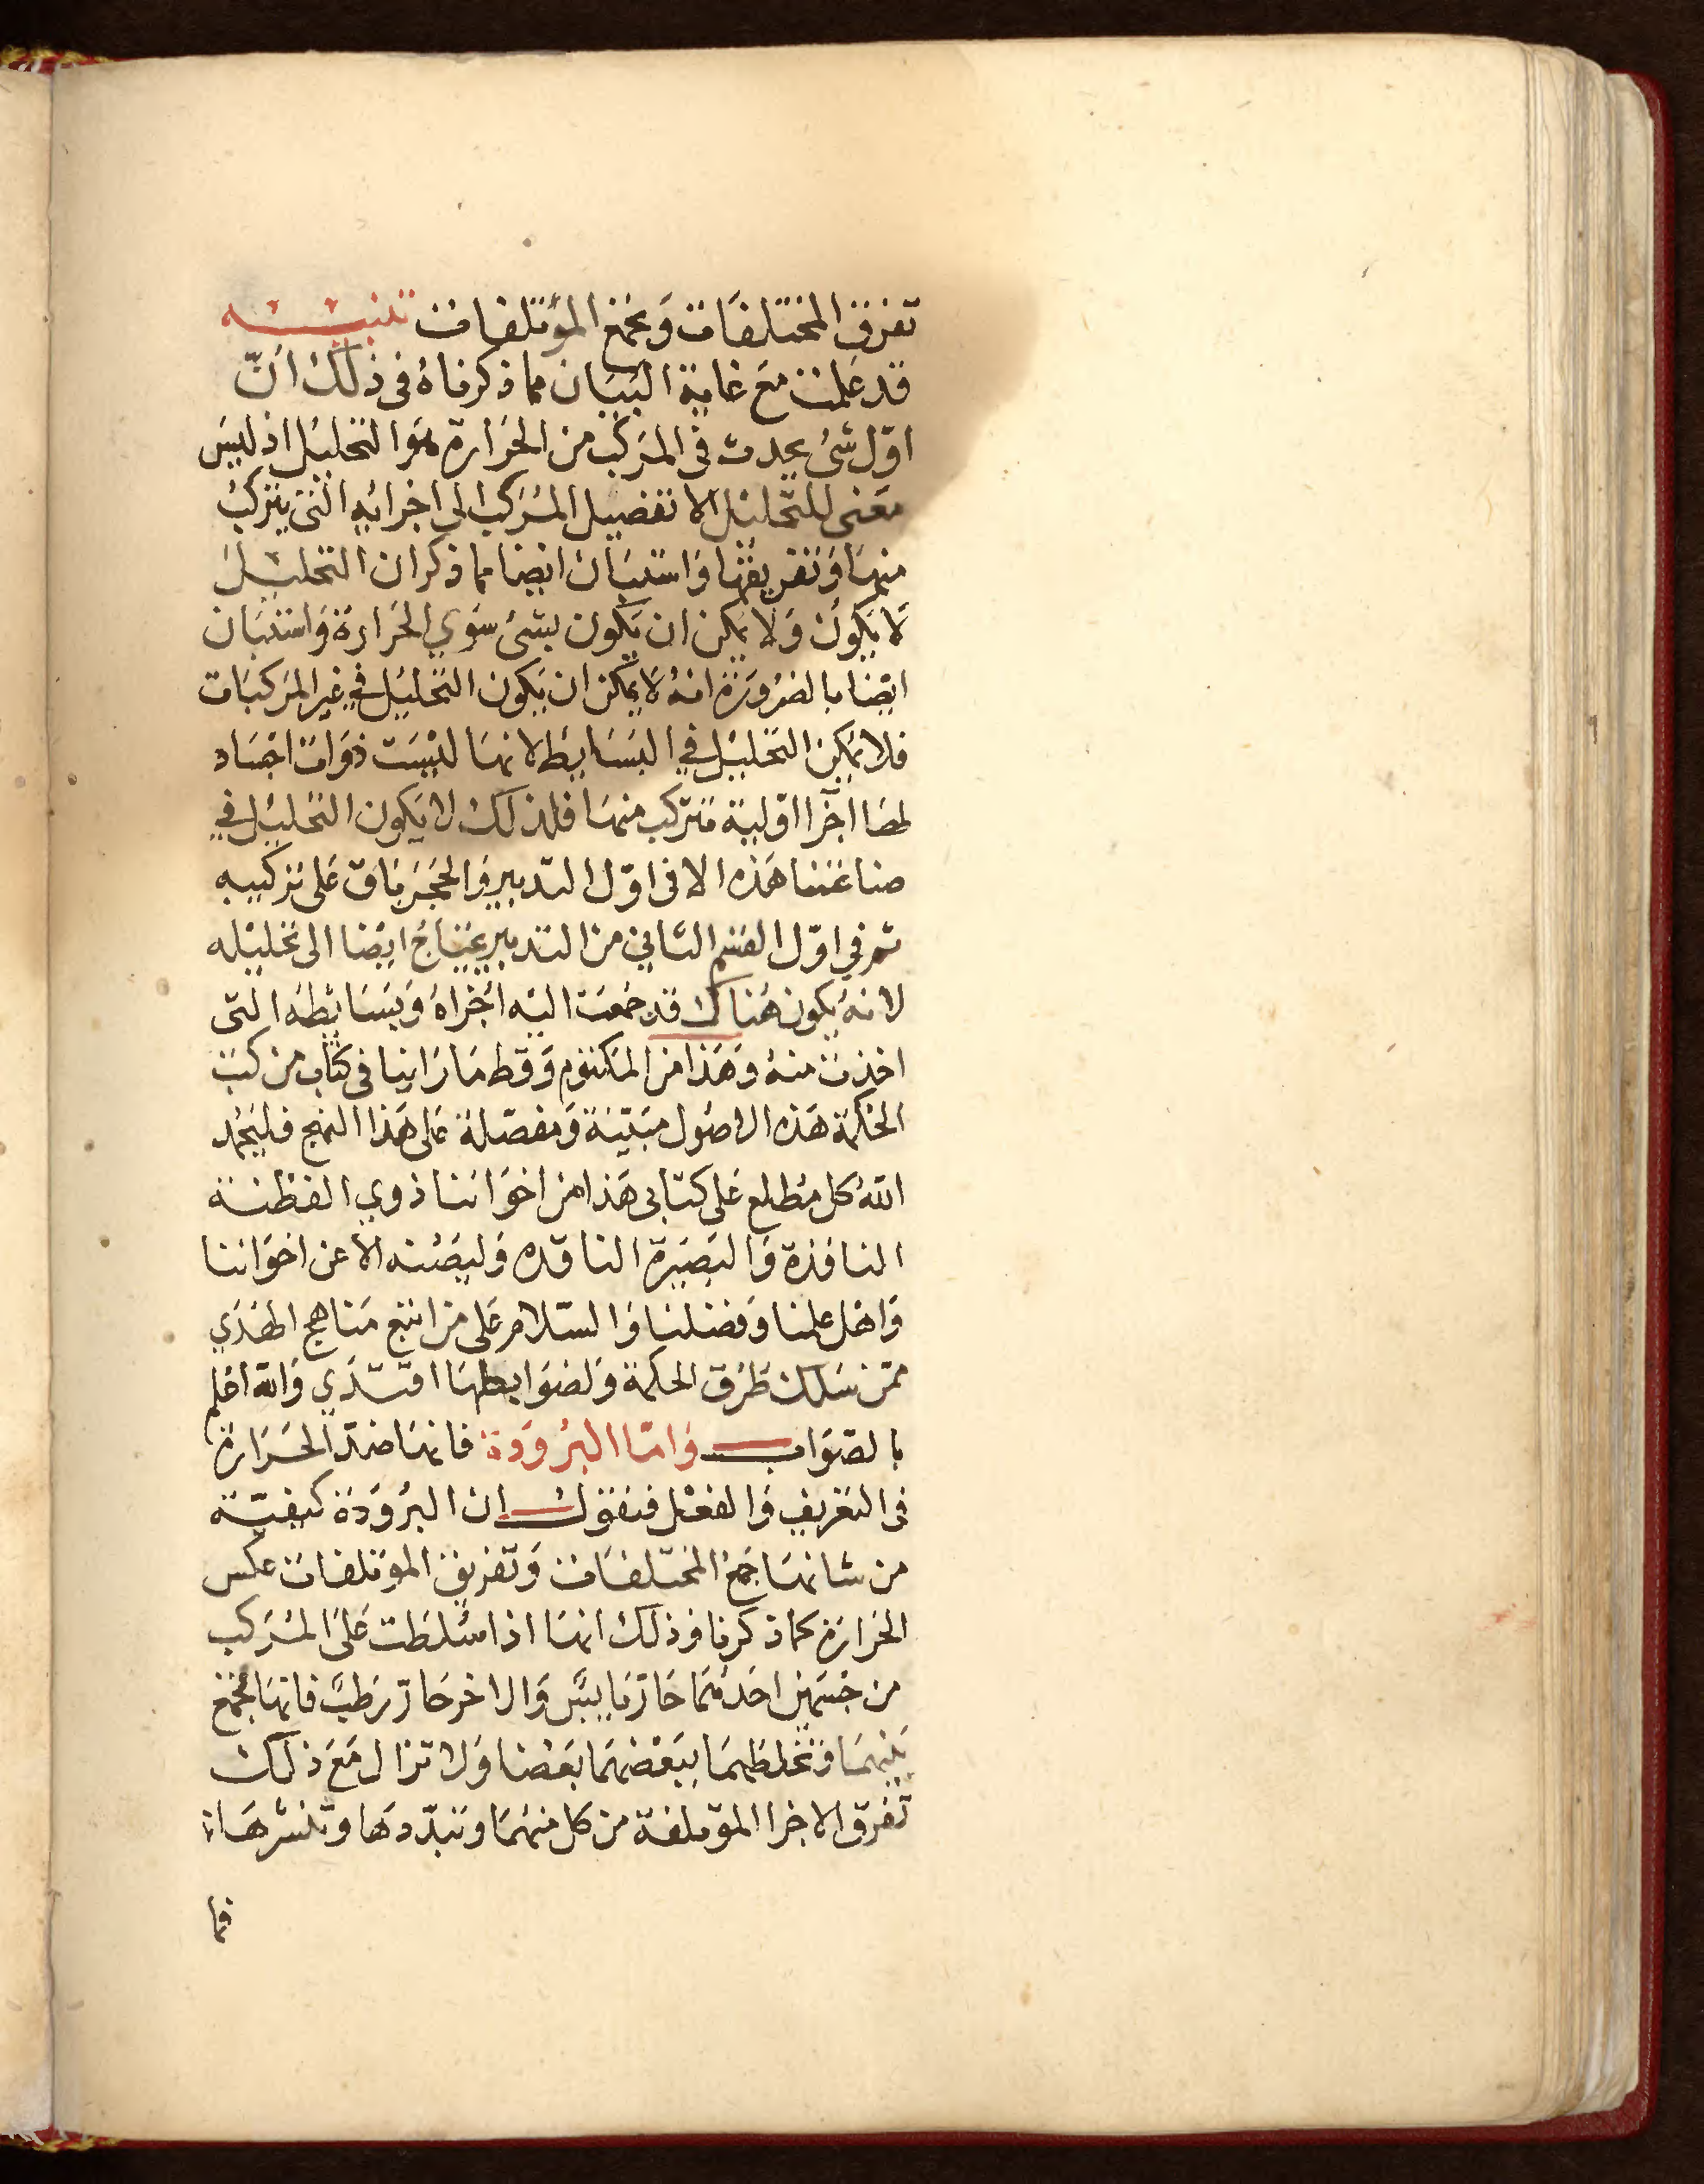 تفرق المختلفات وتجمع المؤتلفات تنبيه
قد علمت مع غاية البيان مما ذكرناه في ذلك انّ
اوّل شئ يحدث في المركب من الحرارة هو التحليل اذ ليس
معنى للتحليل الا تفصيل المركب الى اجزائه التى يتركب
منها وتفريقها واستبان ايضا مما ذكر ان التحليل
لا يكون ولا يمكن ان يكون بشئ سوي الحرارة واستبان
ايضا بالضرورة انه لا يمكن ان يكون التحليل في غير المركبات
فلا يمكن التحليل في البسايط لانها ليست ذوات اجساد
لها اجزا اوّلية تتركب منها فلذلك لا يكون التحليل في
صناعتنا هذه الا فى اوّل التدبير والحجر باق على تركيبه
ثم في اوّل القسم الثاني من التدبير يحتاج ايضا الى تحليله
لانه يكون هناك قد جمعت اليه اجزاه وبسايطه التى
اخذت منه وهذا من المكتوم وقط ما راينا فى كتاب من كتب
الحكمة هذه الاصول مبيّنة ومفصّلة على هذا النهج فليحمد
الله كل مطلع على كتابى هذا من اخواننا ذوي الفطنة
النافذة والبصيرة الناقده وليصنه الا عن اخواننا
واهل علمنا وفضلنا والسّلام على من اتبع مناهج الهدي
ممن سلك طرق الحكمة ولضوابطها اقتدي والله اعلم
بالصّواب وامّا البرودة فانها ضدّ الحرارة
فى التعريف والفعل فنقول ان البرودة كيفيّة
من شانها جمع المختلفات وتفريق الموتلفات عكس
الحرارة كما ذكرنا وذلك انها اذا سُلطت على المركب
من جسمين احدهما حارّ يابس والاخر حارّ رطب فانها تجمع
بينهما وتخلطهما ببعضهما بعضا ولا تزال مع ذلك
تفرق الاجزا الموتلفة من كل منهما وتبدّدها وتنشرها
فما